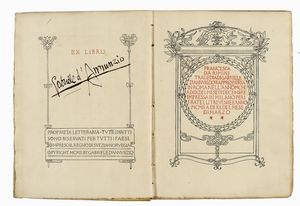 EX LIBRIS
Gabriele d'Annunzio
PROPRIETÀ LETTERARIA · TUTTI I DIRITTI
SONO RISERVATI PER TUTTI I PAESI
COMPRESI IL REGNO DI SVEZIA E NORVEGIA
COPYRIGHT, MCMII BY GABRIELE D'ANNUNZIO
FRANCESCA
DA RIMINI
TRAGEDIA DI GABRIELE
D'ANNUNZIO RAPPRESENTATA
IN ROMA NELL'ANNO MCMI
A DÌ IX DEL MESE DI DECEMBRE
IMPRESSA IN MILANO PER I
FRATELLI TREVES NELL'ANNO
MCMII A DÌ XX DEL MESE
DI MARZO